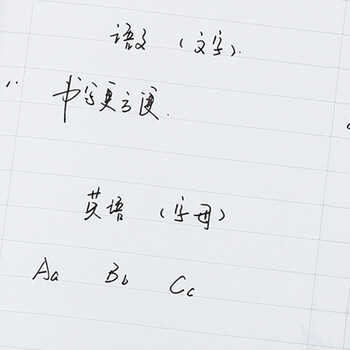 语文（文字）.
书写更方便.
英语（字母）
Aa Bb Cc